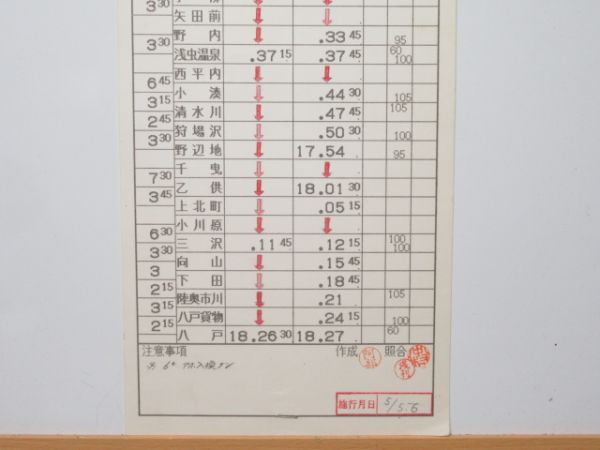 3 30
矢田前
野内 .33 45 95
3 30
浅虫温泉 .37 15 .37 45 60 100
西平内
6 45
小湊 .44 30 105
3 15
清水川 .47 45 105
2 45
狩場沢 .50 30 100
3 30
野辺地 17.54 95
千曳
7 30
乙供 18.01 30
3 45
上北町 .05 15
小川原
6 30
三沢 .11 45 .12 15 100 100
3 30
向山 .15 45
3
下田 .18 45
2 15
陸奥市川 .21 105
3 15
八戸貨物 .24 15 100
2 15
八戸 18.26 30 18.27 60
注意事項 作成 照合
施行月日 5/5.6